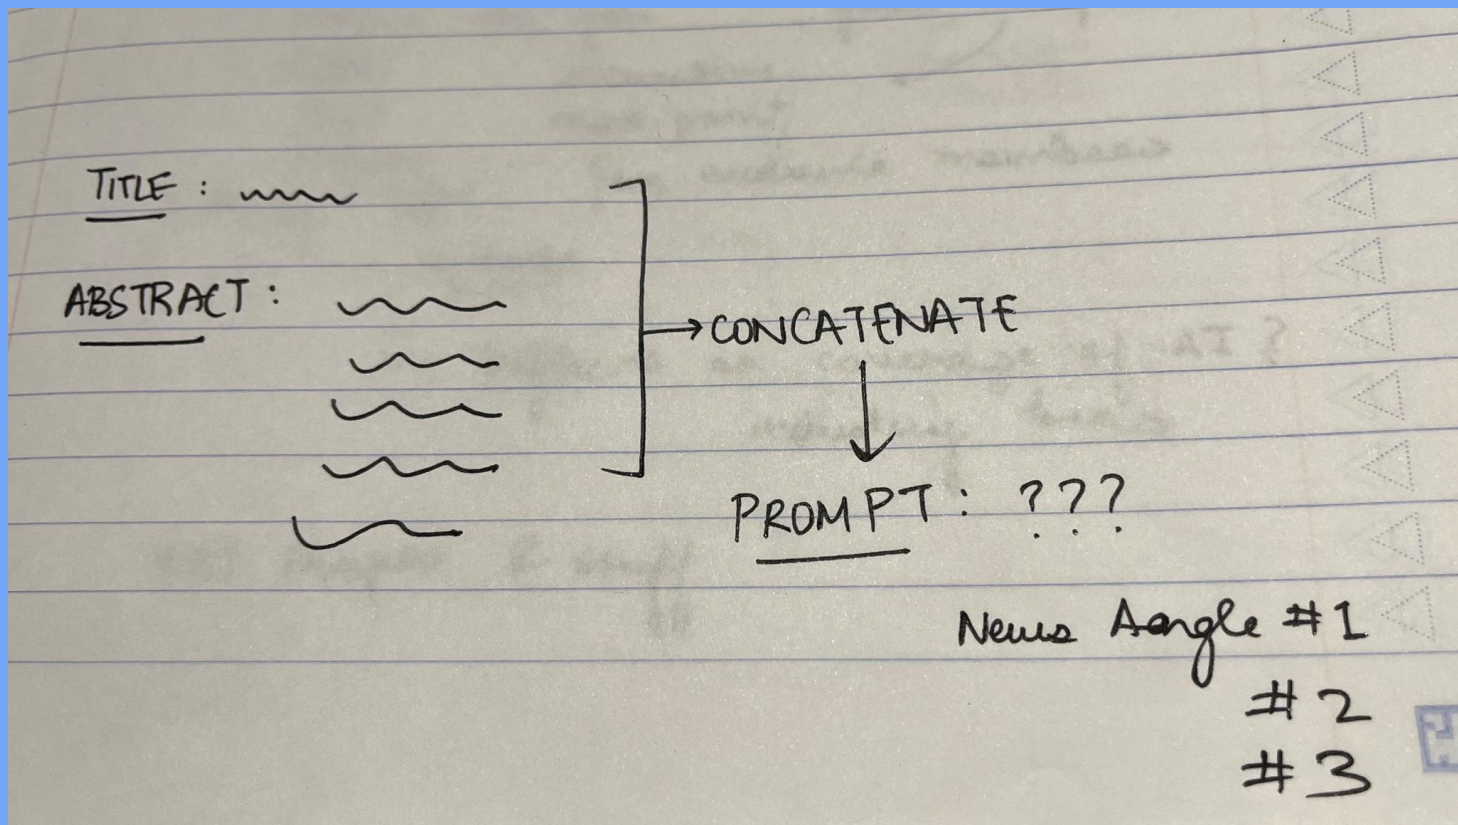 TITLE :
ABSTRACT :
CONCATENATE
PROMPT : ???
News Aangle #1
#2
#3